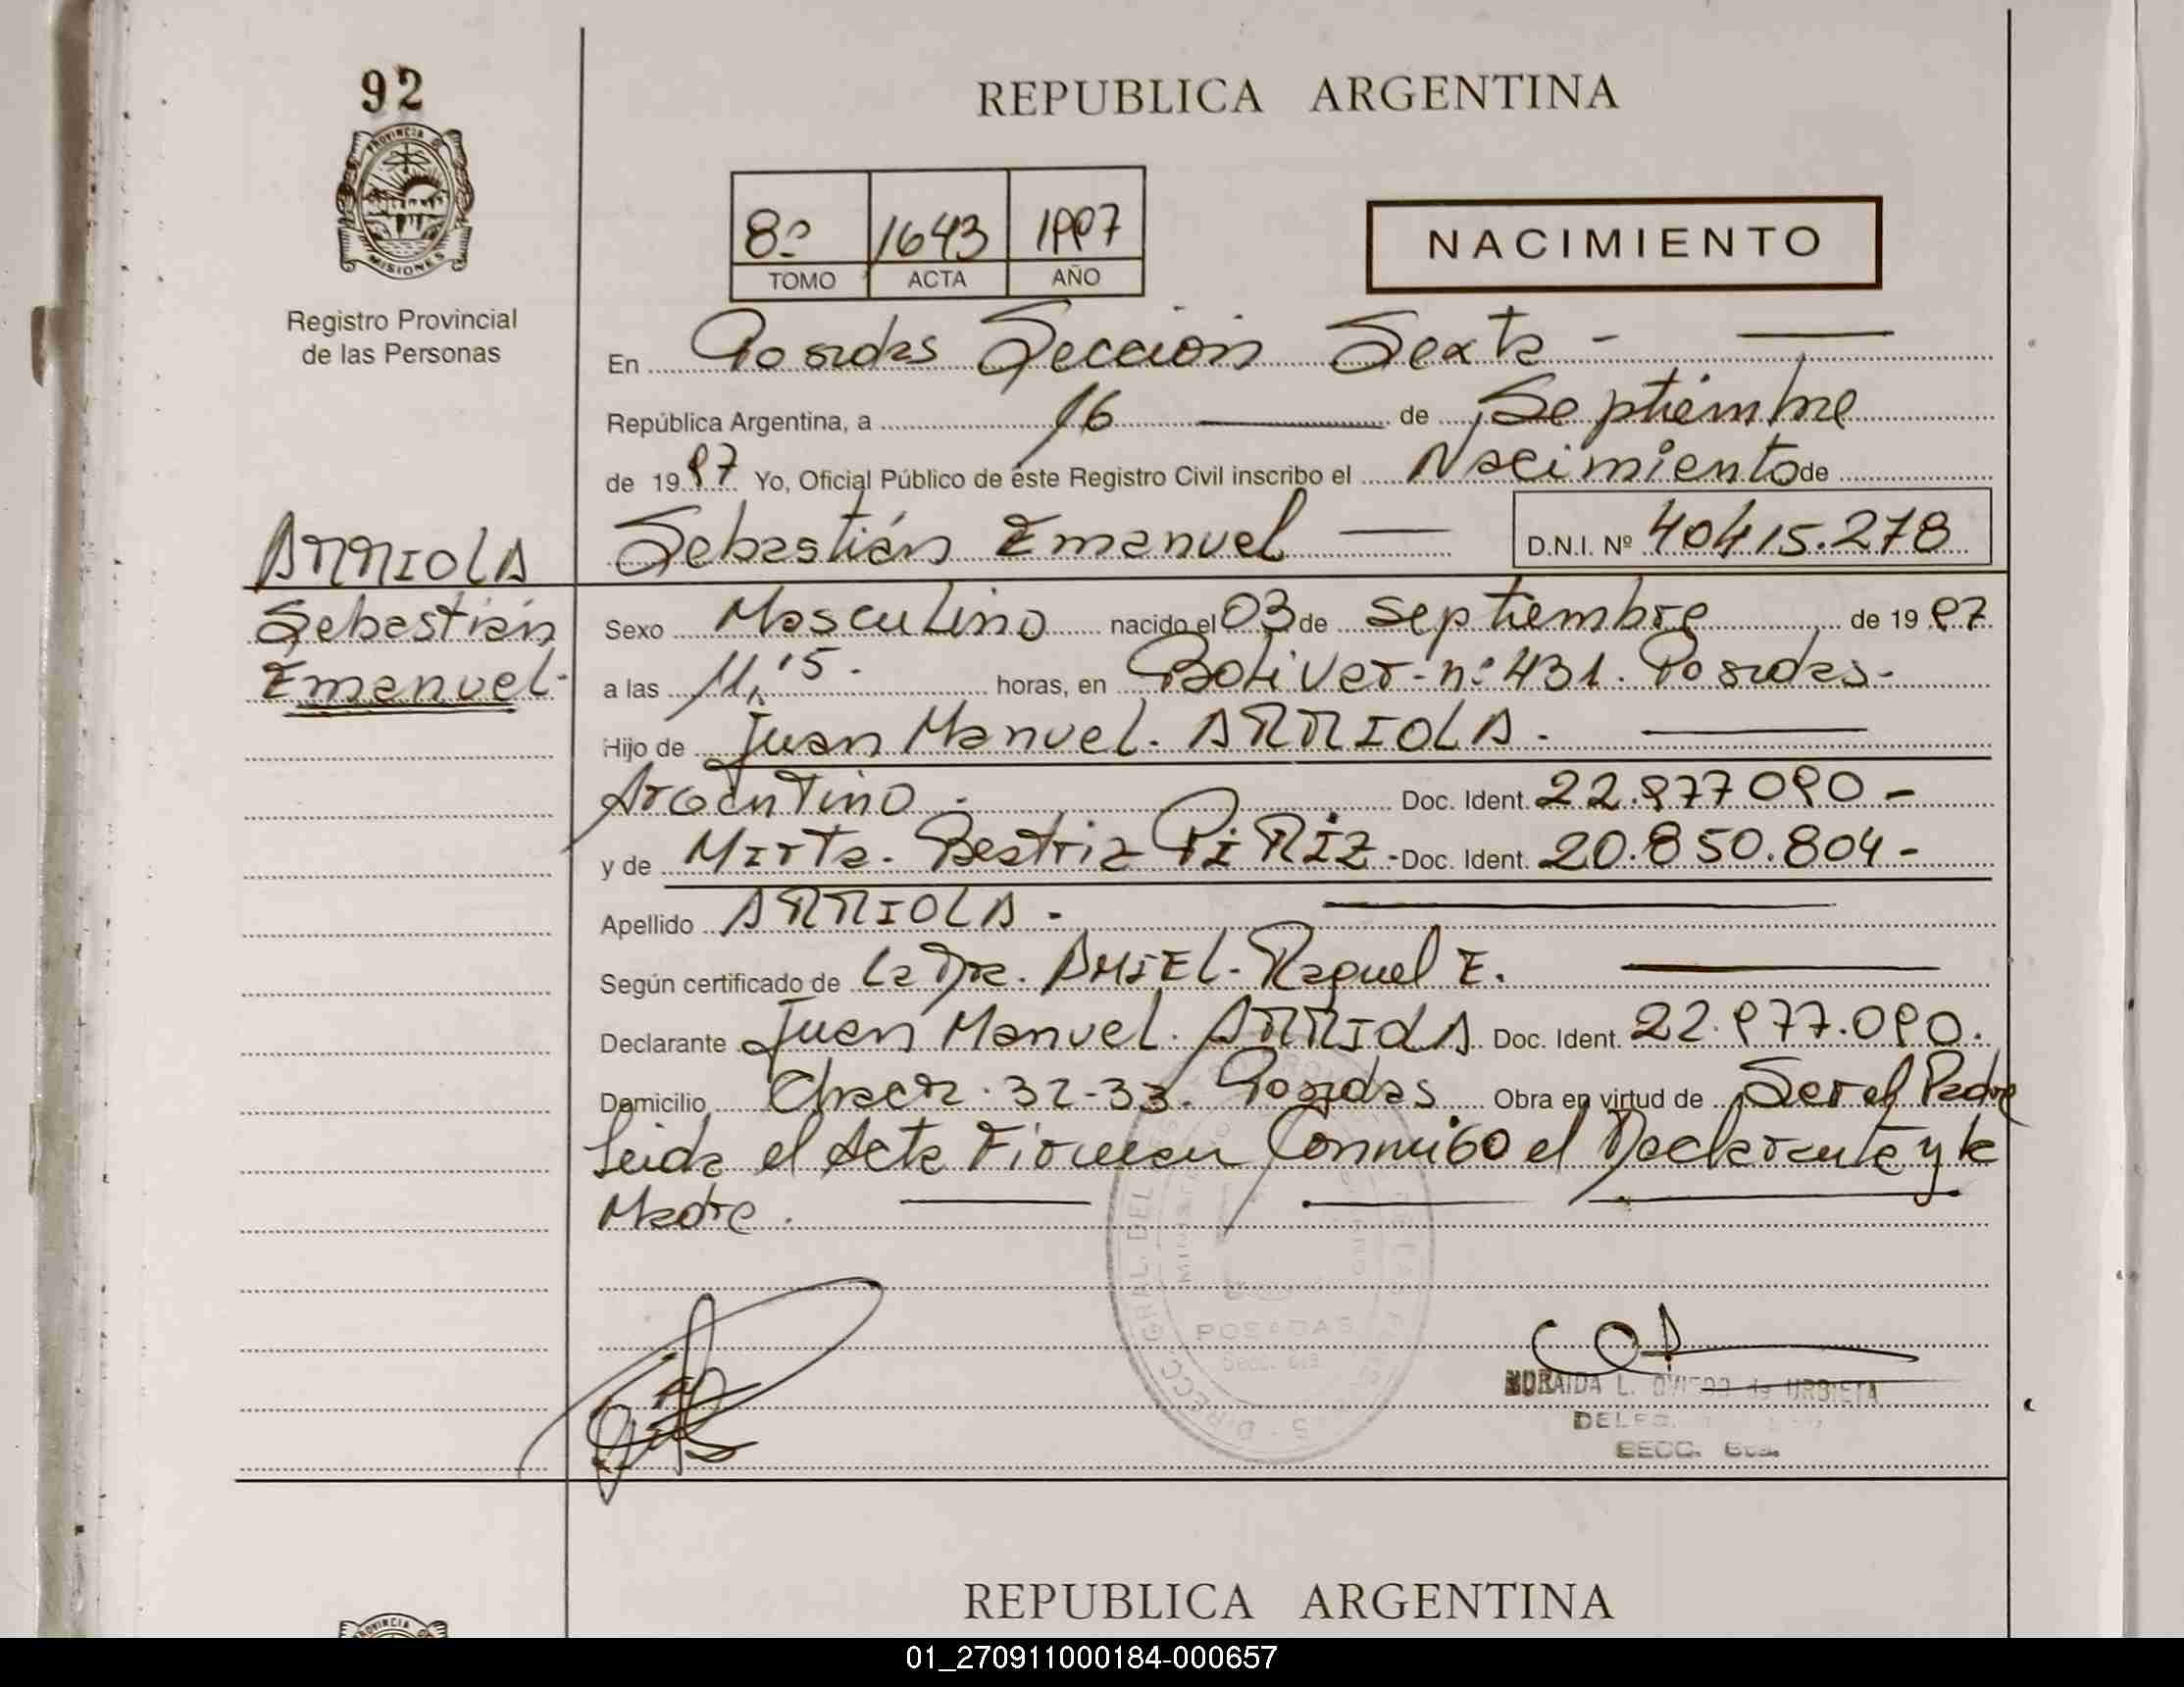 92
PROVINCIA D
MISIONES
Registro Provincial
de las Personas
REPUBLICA ARGENTINA
8º 1643 1997
TOMO ACTA AÑO
NACIMIENTO
En Posadas Sección Sexta -
República Argentina, a 16 de Septiembre
de 1997 Yo, Oficial Público de éste Registro Civil inscribo el Nacimiento de
Sebastián Emanuel D.N.I. Nº 40415.278
ARRIOLA
Sebastián
Emanuel-
Sexo Masculino nacido el 03 de septiembre de 1997
a las 11,15. horas, en Bolivar-nº431. Posadas-
Hijo de Juan Manuel. ARRIOLA.
Argentino. Doc. Ident. 22.977090-
y de Mirta. Beatriz PIRIZ-Doc. Ident. 20.850.804-
Apellido ARRIOLA.
Según certificado de La Dra. AMIEL-Raquel E.
Declarante Juan Manuel. ARRIOLA Doc. Ident. 22.977.090.
Domicilio Chacra. 32-33. Posadas Obra en virtud de Ser el Padre
Leida el Acta Firman Conmigo el Declarante y la
Madre.
POSADAS
Secc. 6ta
URBIETA
SECC. 6ta.
REPUBLICA ARGENTINA
PROVINCIA
01_270911000184-000657